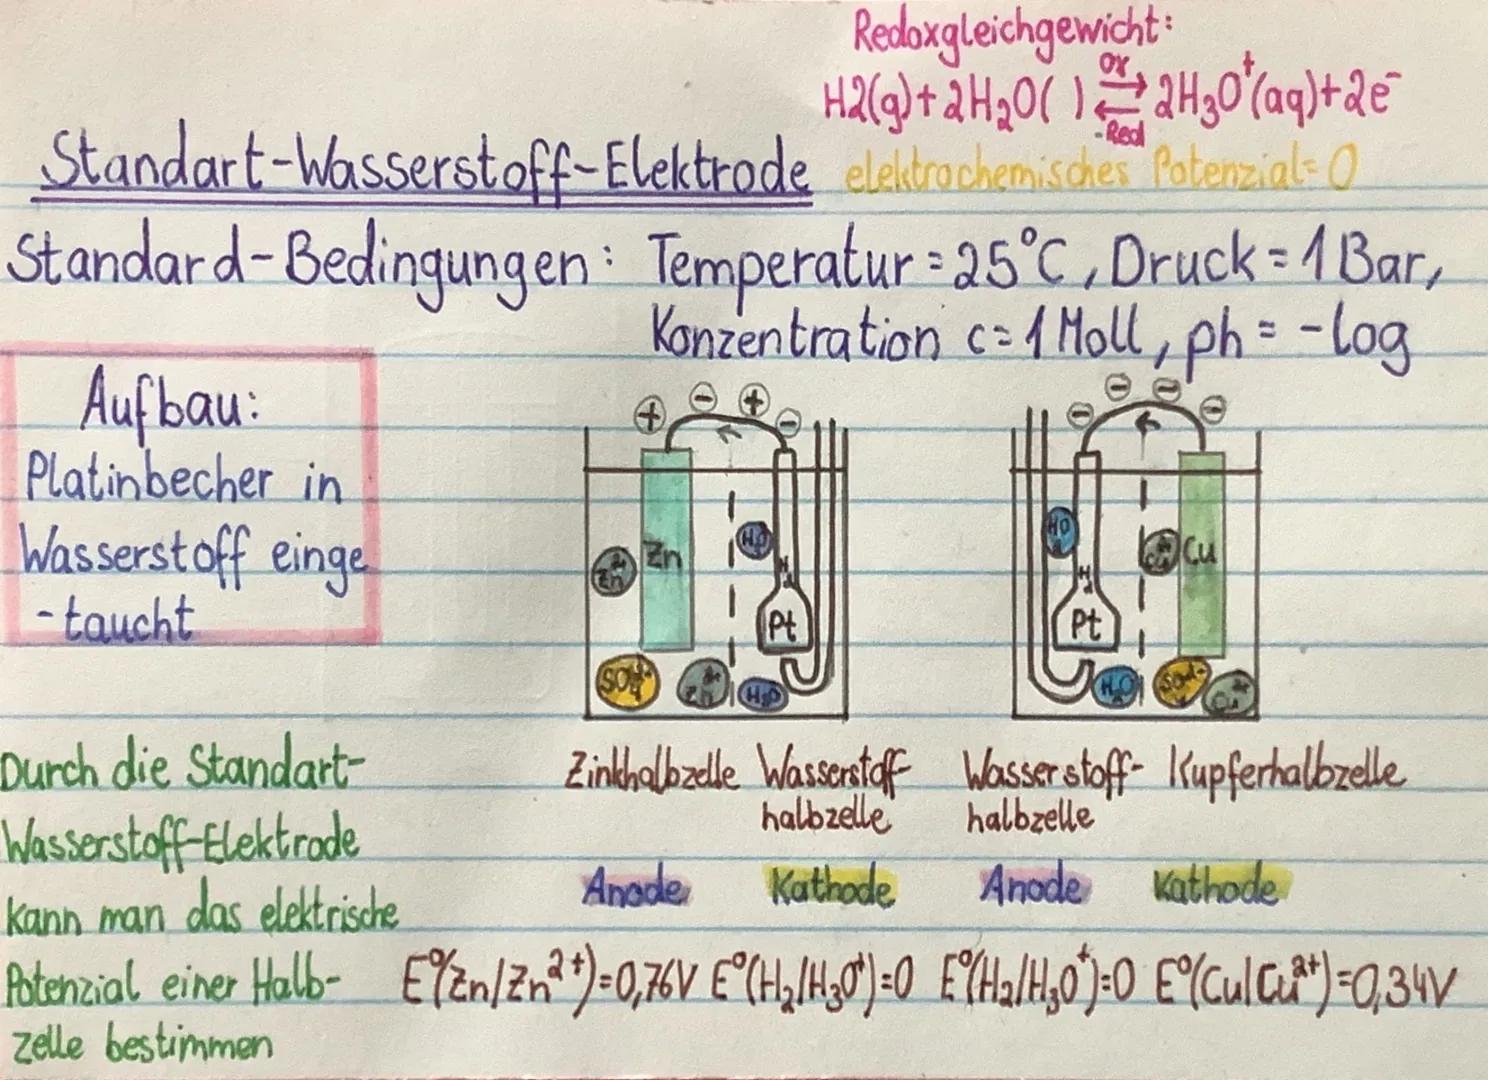 Redoxgleichgewicht:
H2(g)+2H₂O( ) ⇌ 2H₃O⁺(aq)+2e⁻
ox
Red
Standart-Wasserstoff-Elektrode
elektrochemisches Potenzial=0
Standard-Bedingungen: Temperatur=25°C, Druck=1Bar,
Konzentration c=1Moll, ph=-log
Aufbau:
Platinbecher in
Wasserstoff einge
-taucht
+ - + -
- - - -
Zn²⁺ Zn H₂O H₂ Pt
SO₄²⁻ Zn²⁺ H₂O
H₂O H₂ Pt Cu²⁺ Cu
H₂O SO₄²⁻ Cu²⁺
Zinkhalbzelle Wasserstoff-
halbzelle
Wasserstoff-
halbzelle
Kupferhalbzelle
Anode Kathode Anode Kathode
E°(Zn/Zn²⁺)=0,76V E°(H₂/H₃O⁺)=0 E°(H₂/H₃O⁺)=0 E°(Cu/Cu²⁺)=0,34V
Durch die Standart-
Wasserstoff-Elektrode
kann man das elektrische
Potenzial einer Halb-
zelle bestimmen